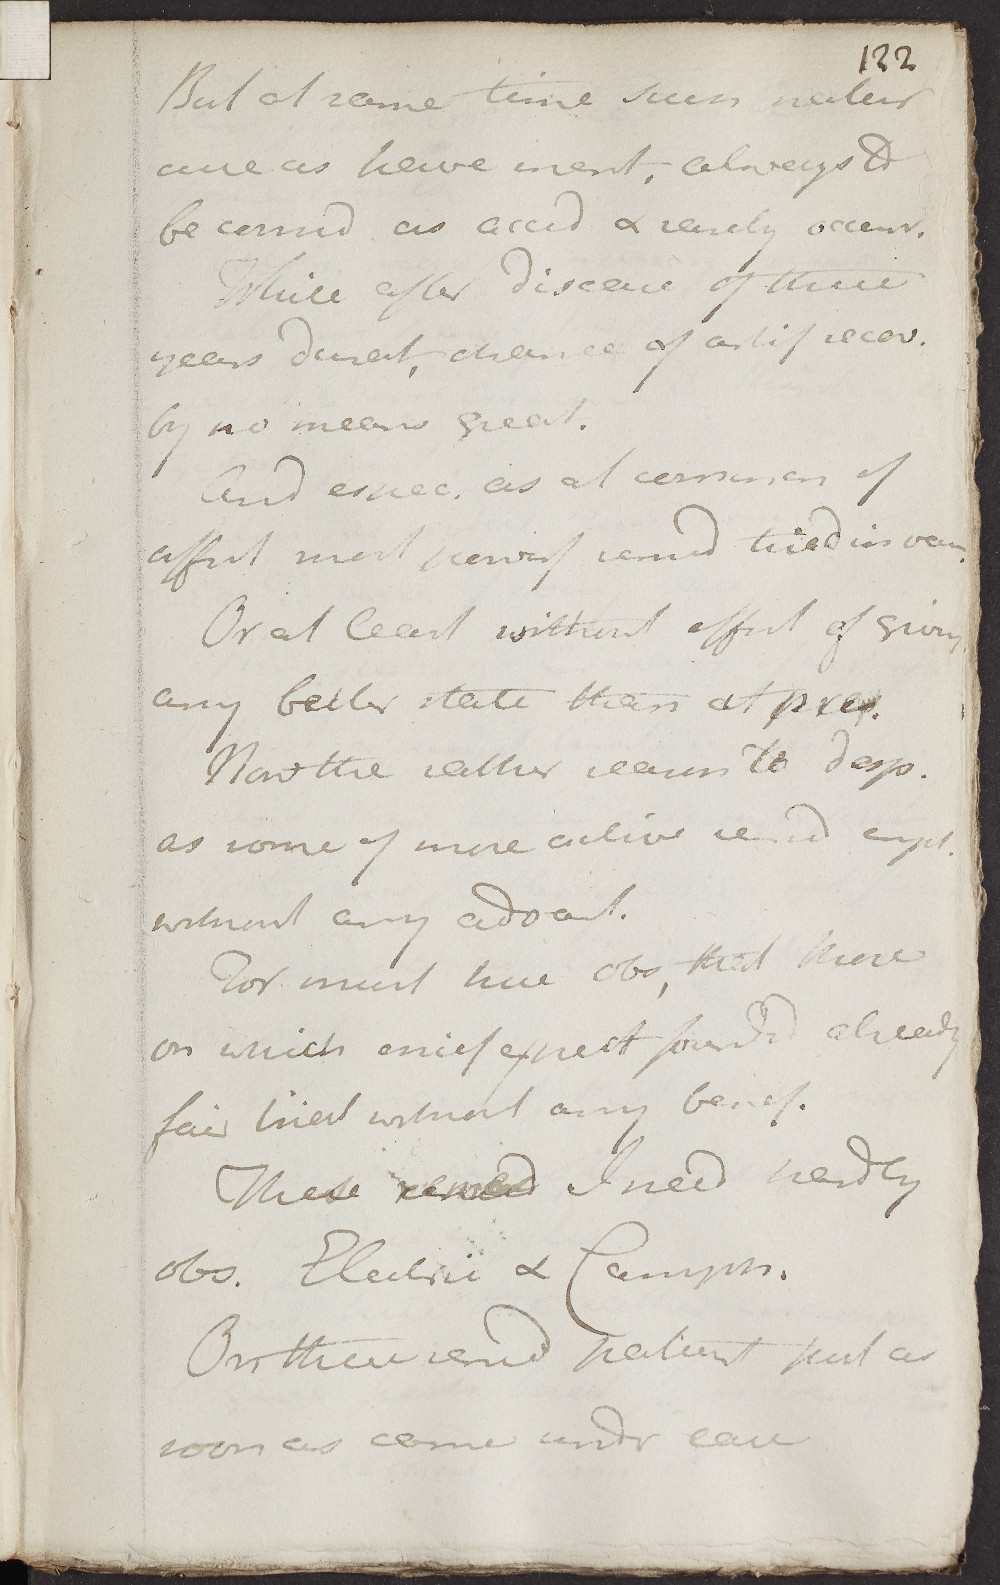 122
But at same time such natur
cure as have ment, always to
be consid as accid & rarely occur.
While after disease of three
years durat, chance of artif recov.
by no means great.
And espec. as at commen of
affect most powerf remed tried in vain.
Or at least without effect of giving
any better state than at pres.
Now the rather reason to desp.
as some of more active remed empl.
without any advant.
For must here obs, that those
on which chief expect found'd already
fair trial without any benef.
These remed I need hardly
obs. Electric & Camph.
On these remed patient put as
soon as came undr care